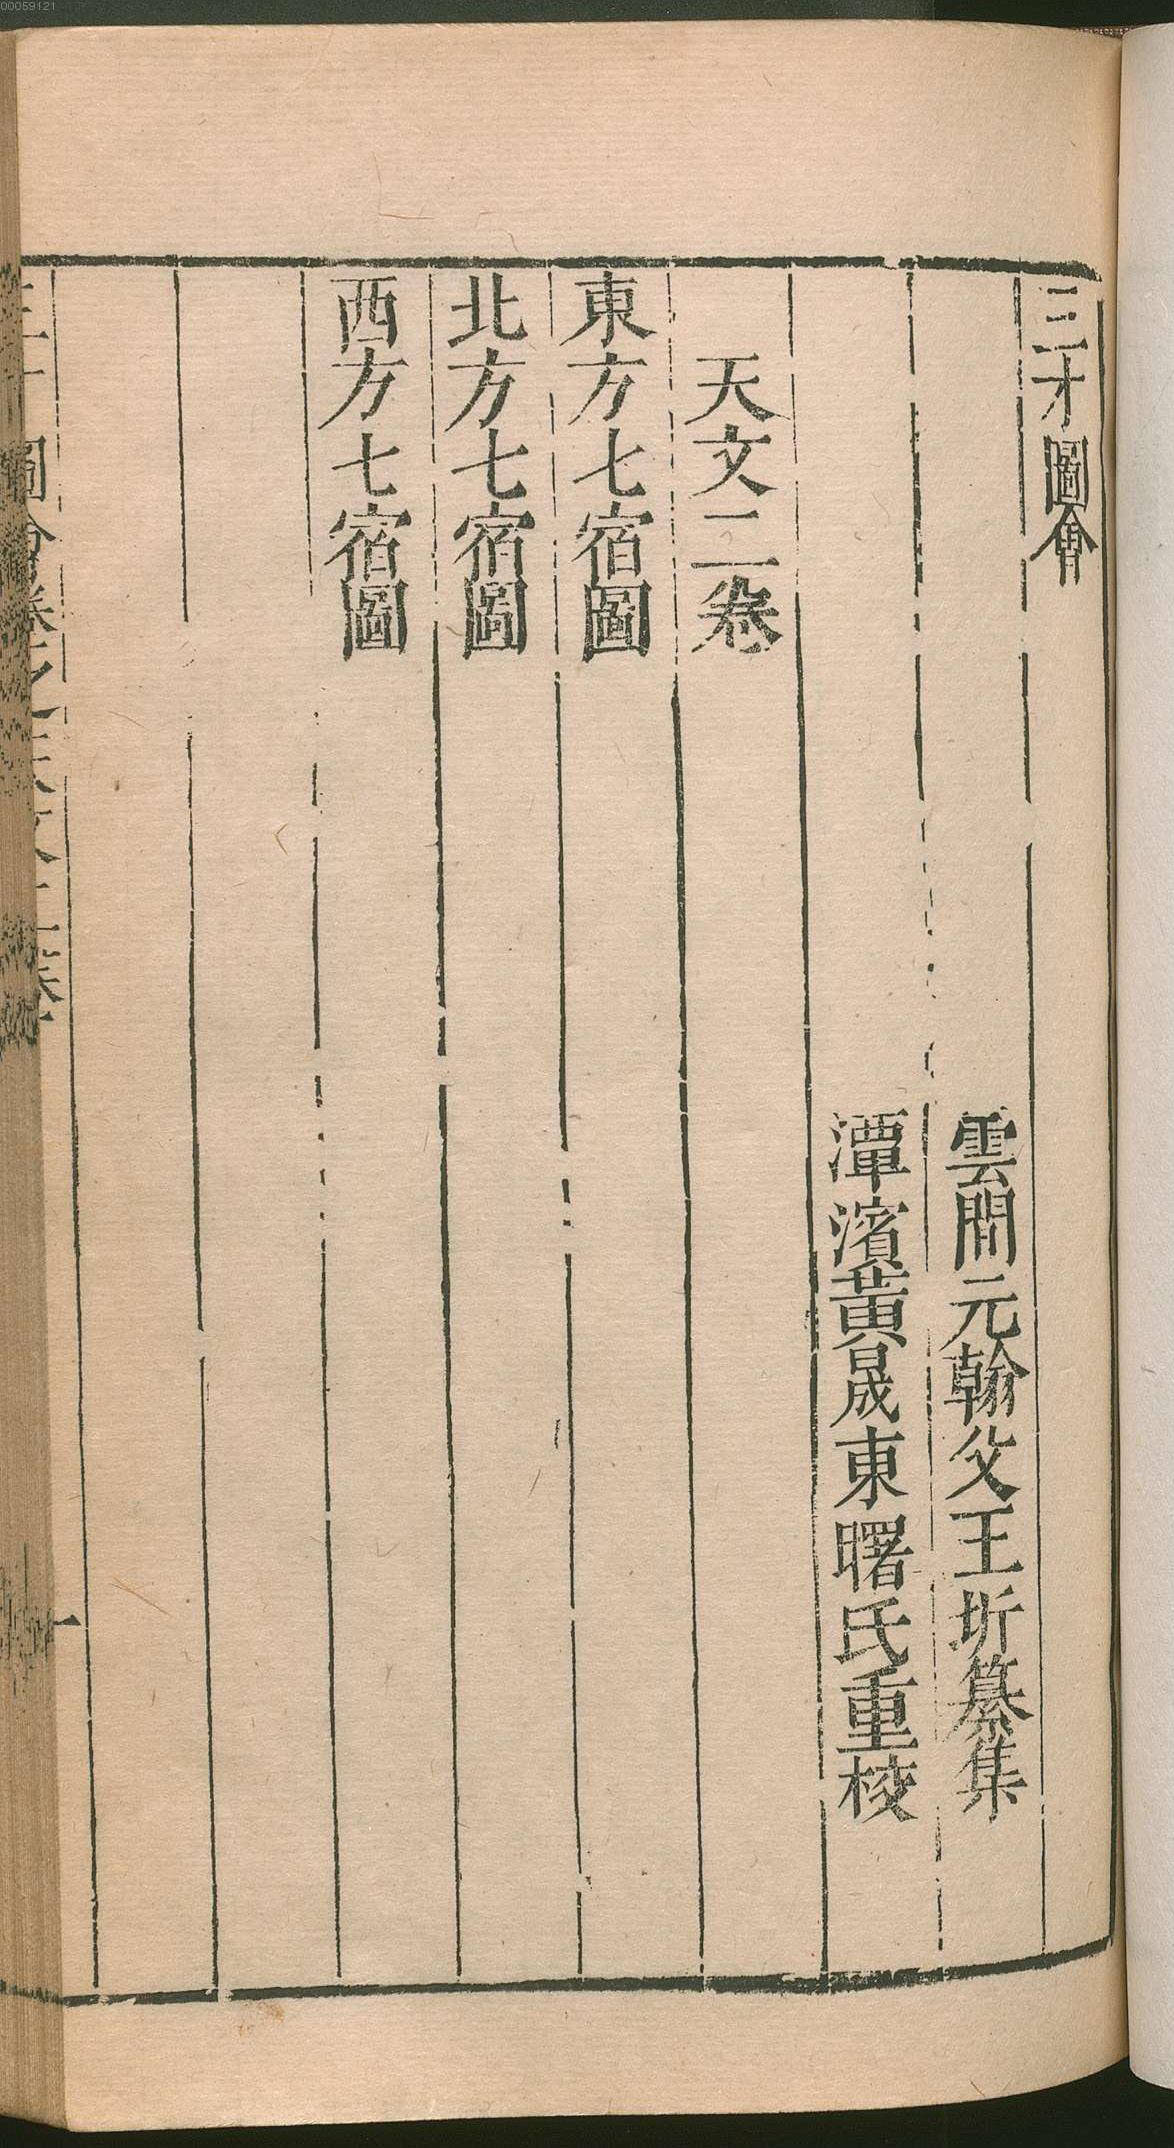 00059121
三才圖會
雲間元翰父王圻纂集
潭濱黃晟東曙氏重校
天文二卷
東方七宿圖
北方七宿圖
西方七宿圖